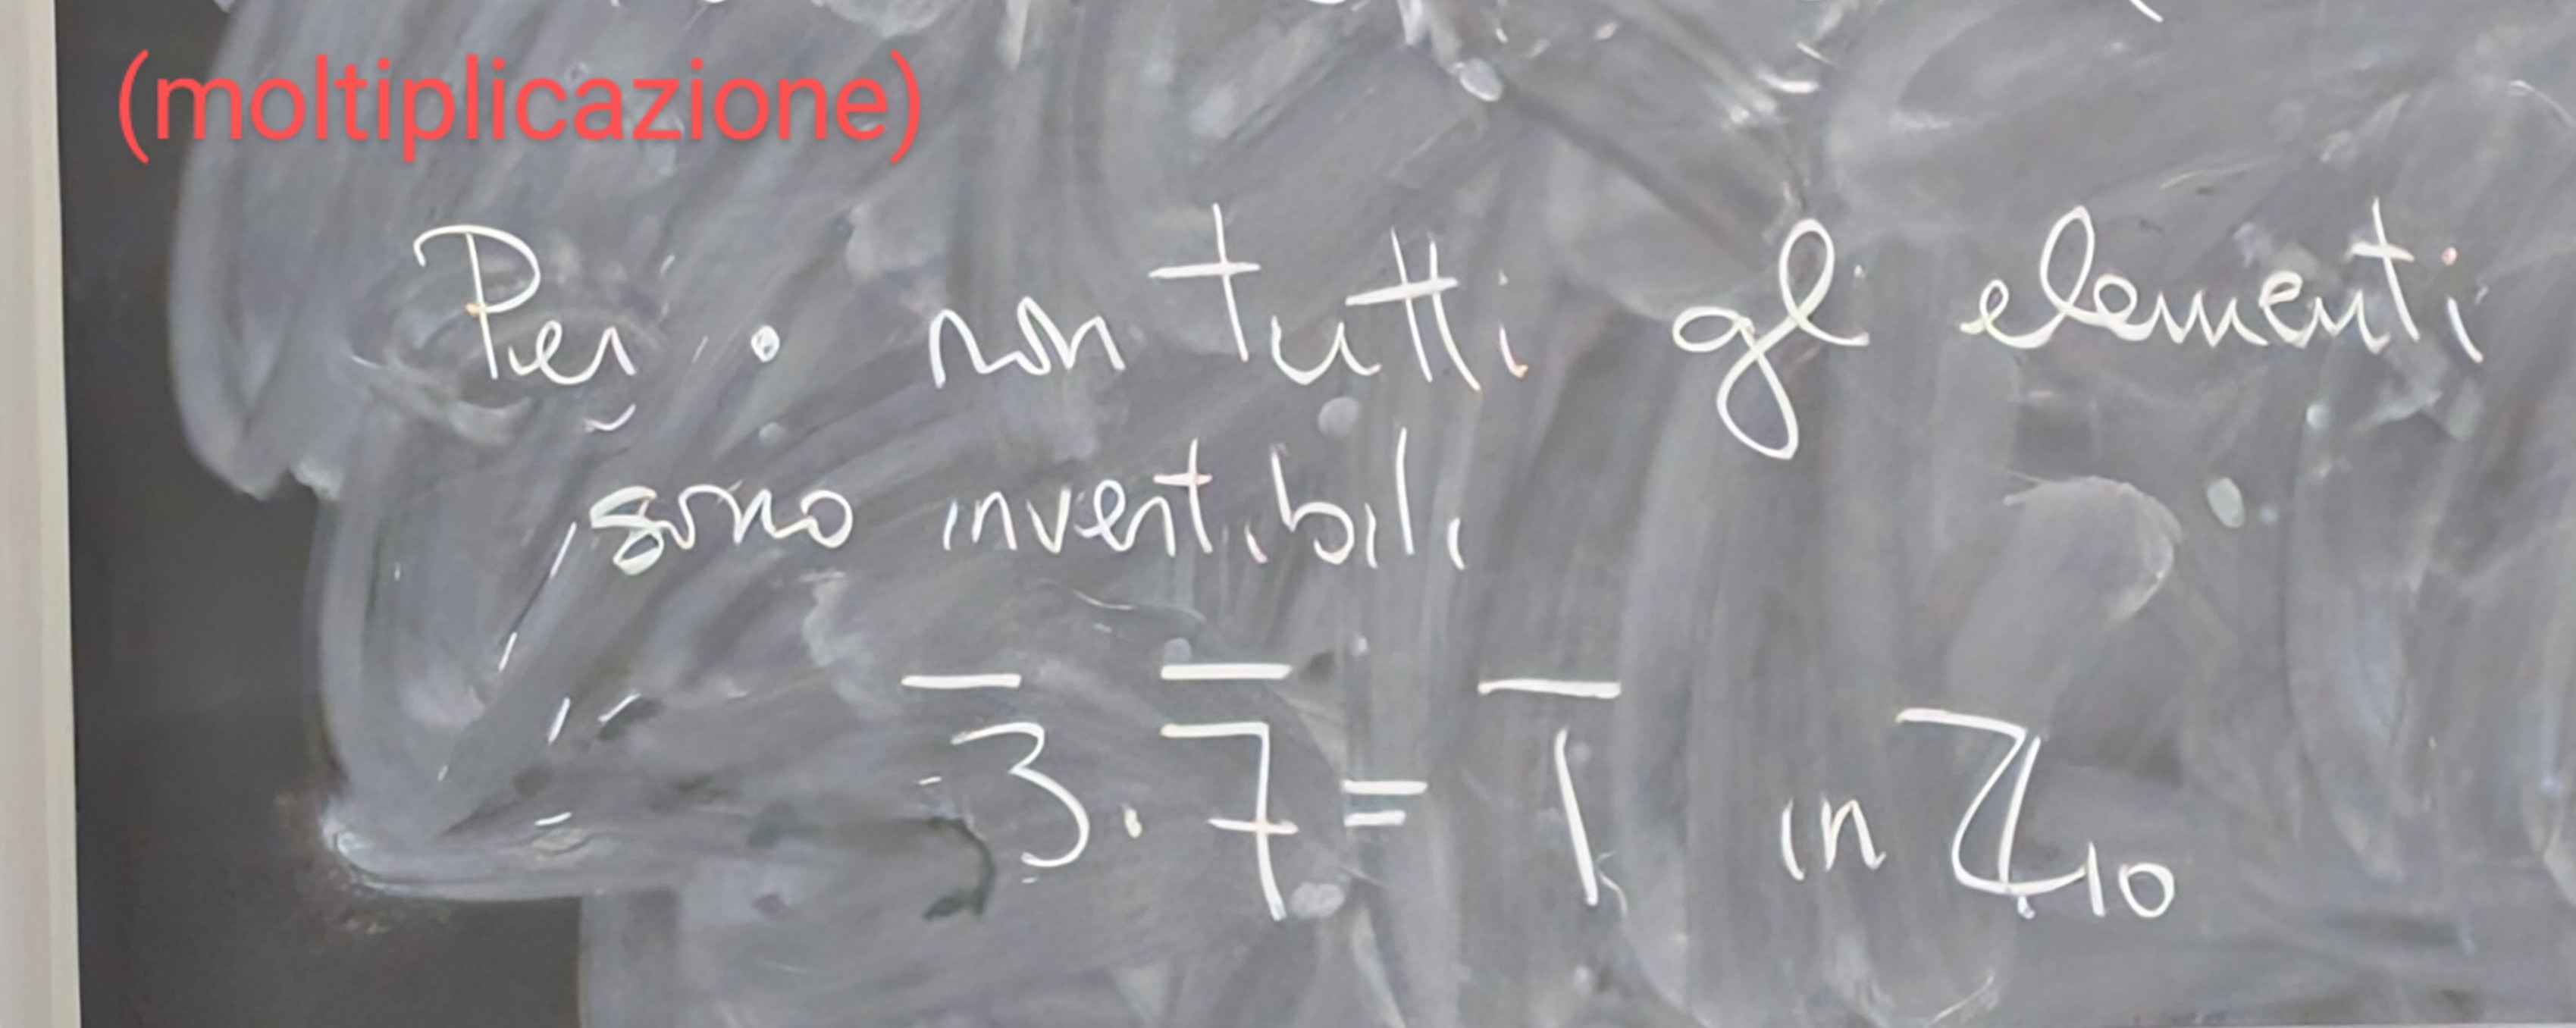 (moltiplicazione)
Per · non tutti gli elementi
sono invertibili
3̅ · 7̅ = 1̅ in ℤ₁₀